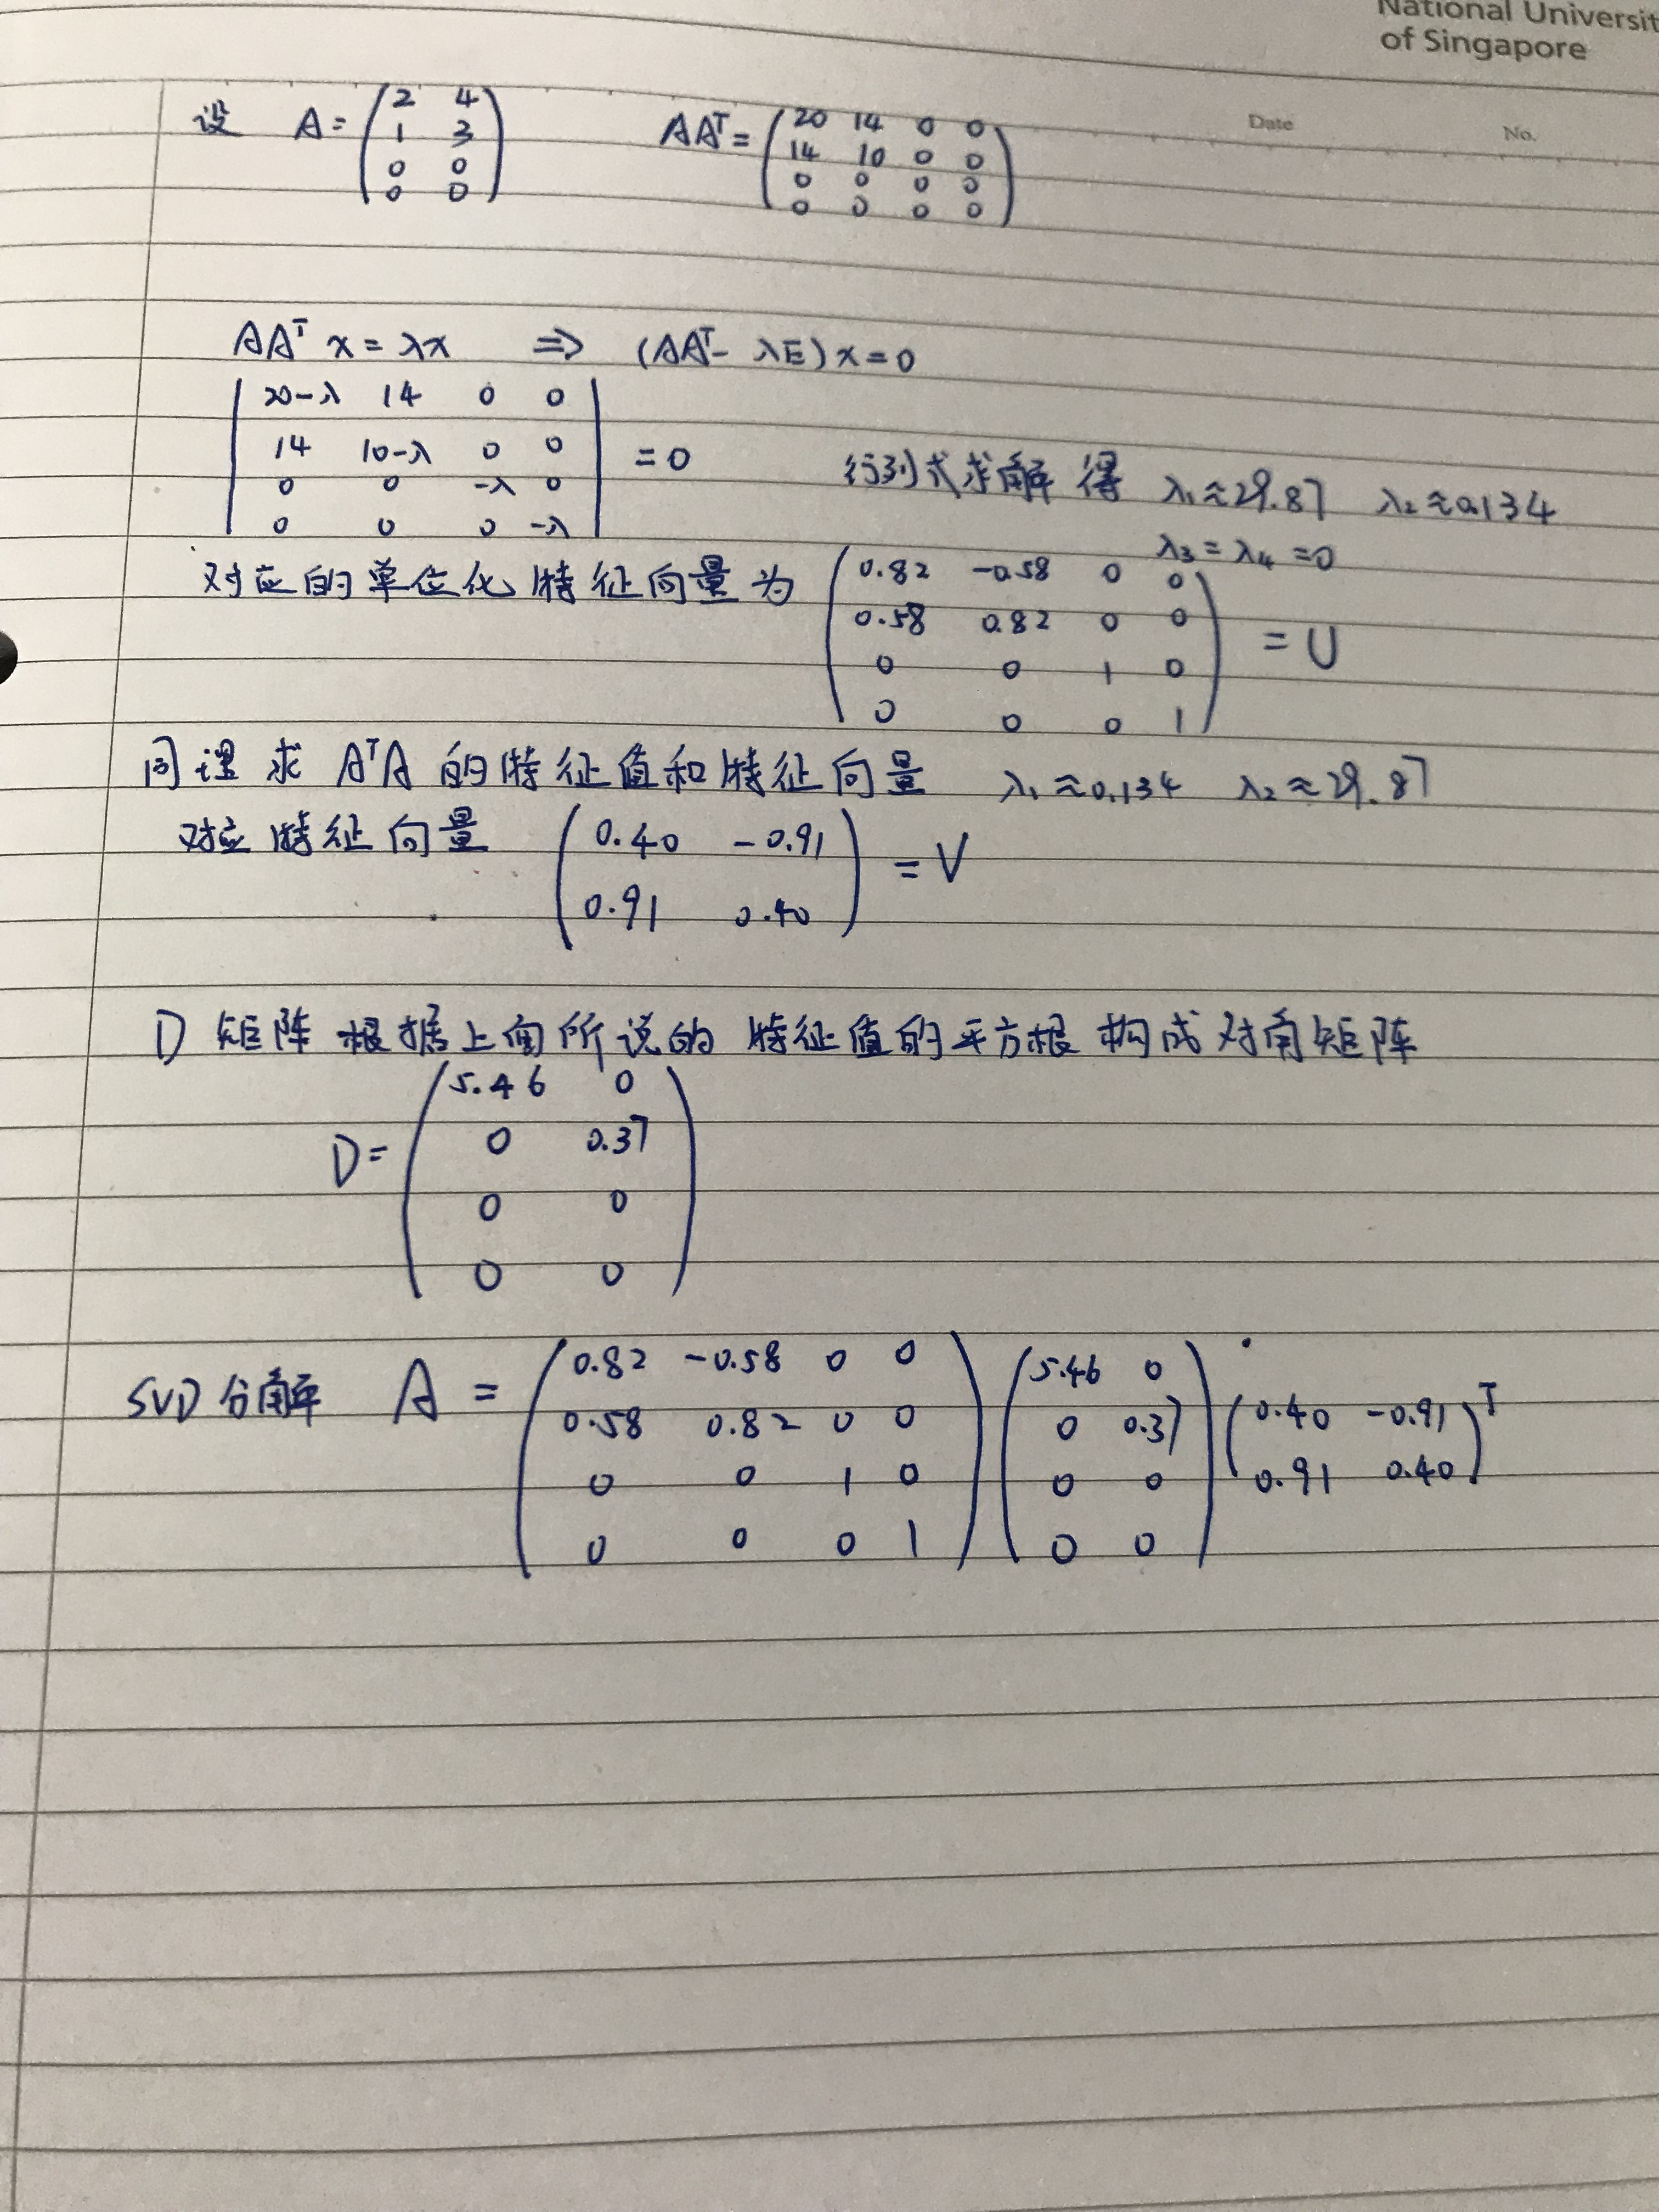 National Universit
of Singapore
Date No.
设 A = (2 4; 1 3; 0 0; 0 0) AAᵀ = (20 14 0 0; 14 10 0 0; 0 0 0 0; 0 0 0 0)
AAᵀ x = λx ⇒ (AAᵀ - λE) x = 0
|20-λ 14 0 0; 14 10-λ 0 0; 0 0 -λ 0; 0 0 0 -λ| = 0 行列式求解得 λ₁≈29.87 λ₂≈0.134
λ₃ = λ₄ = 0
对应的单位化特征向量为 (0.82 -0.58 0 0; 0.58 0.82 0 0; 0 0 1 0; 0 0 0 1) = U
同理求 AᵀA 的特征值和特征向量 λ₁≈0.134 λ₂≈29.87
对应特征向量 (0.40 -0.91; 0.91 0.40) = V
D 矩阵根据上面所说的特征值的平方根构成对角矩阵
D = (5.46 0; 0 0.37; 0 0; 0 0)
SVD分解 A = (0.82 -0.58 0 0; 0.58 0.82 0 0; 0 0 1 0; 0 0 0 1) (5.46 0; 0 0.37; 0 0; 0 0) (0.40 -0.91; 0.91 0.40)ᵀ